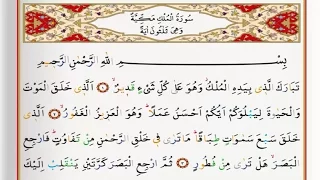 سُورَةُ الْمُلْكِ مَكِّيَّةٌ
وَهِيَ ثَلٰثُونَ اٰيَةً
بِسْمِ اللّٰهِ الرَّحْمٰنِ الرَّحِيمِ
تَبَارَكَ الَّذ۪ي بِيَدِهِ الْمُلْكُ وَهُوَ عَلٰى كُلِّ شَيْءٍ قَد۪يرٌۙ ﴿١﴾ اَلَّذ۪ي خَلَقَ الْمَوْتَ
وَالْحَيٰوةَ لِيَبْلُوَكُمْ اَيُّكُمْ اَحْسَنُ عَمَلًاۜ وَهُوَ الْعَز۪يزُ الْغَفُورُۙ ﴿٢﴾ اَلَّذ۪ي
خَلَقَ سَبْعَ سَمٰوَاتٍ طِبَاقًاۜ مَا تَرٰى ف۪ي خَلْقِ الرَّحْمٰنِ مِنْ تَفَاوُتٍۜ فَارْجِعِ
الْبَصَرَۙ هَلْ تَرٰى مِنْ فُطُورٍ ﴿٣﴾ ثُمَّ ارْجِعِ الْبَصَرَ كَرَّتَيْنِ يَنْقَلِبْ اِلَيْكَ